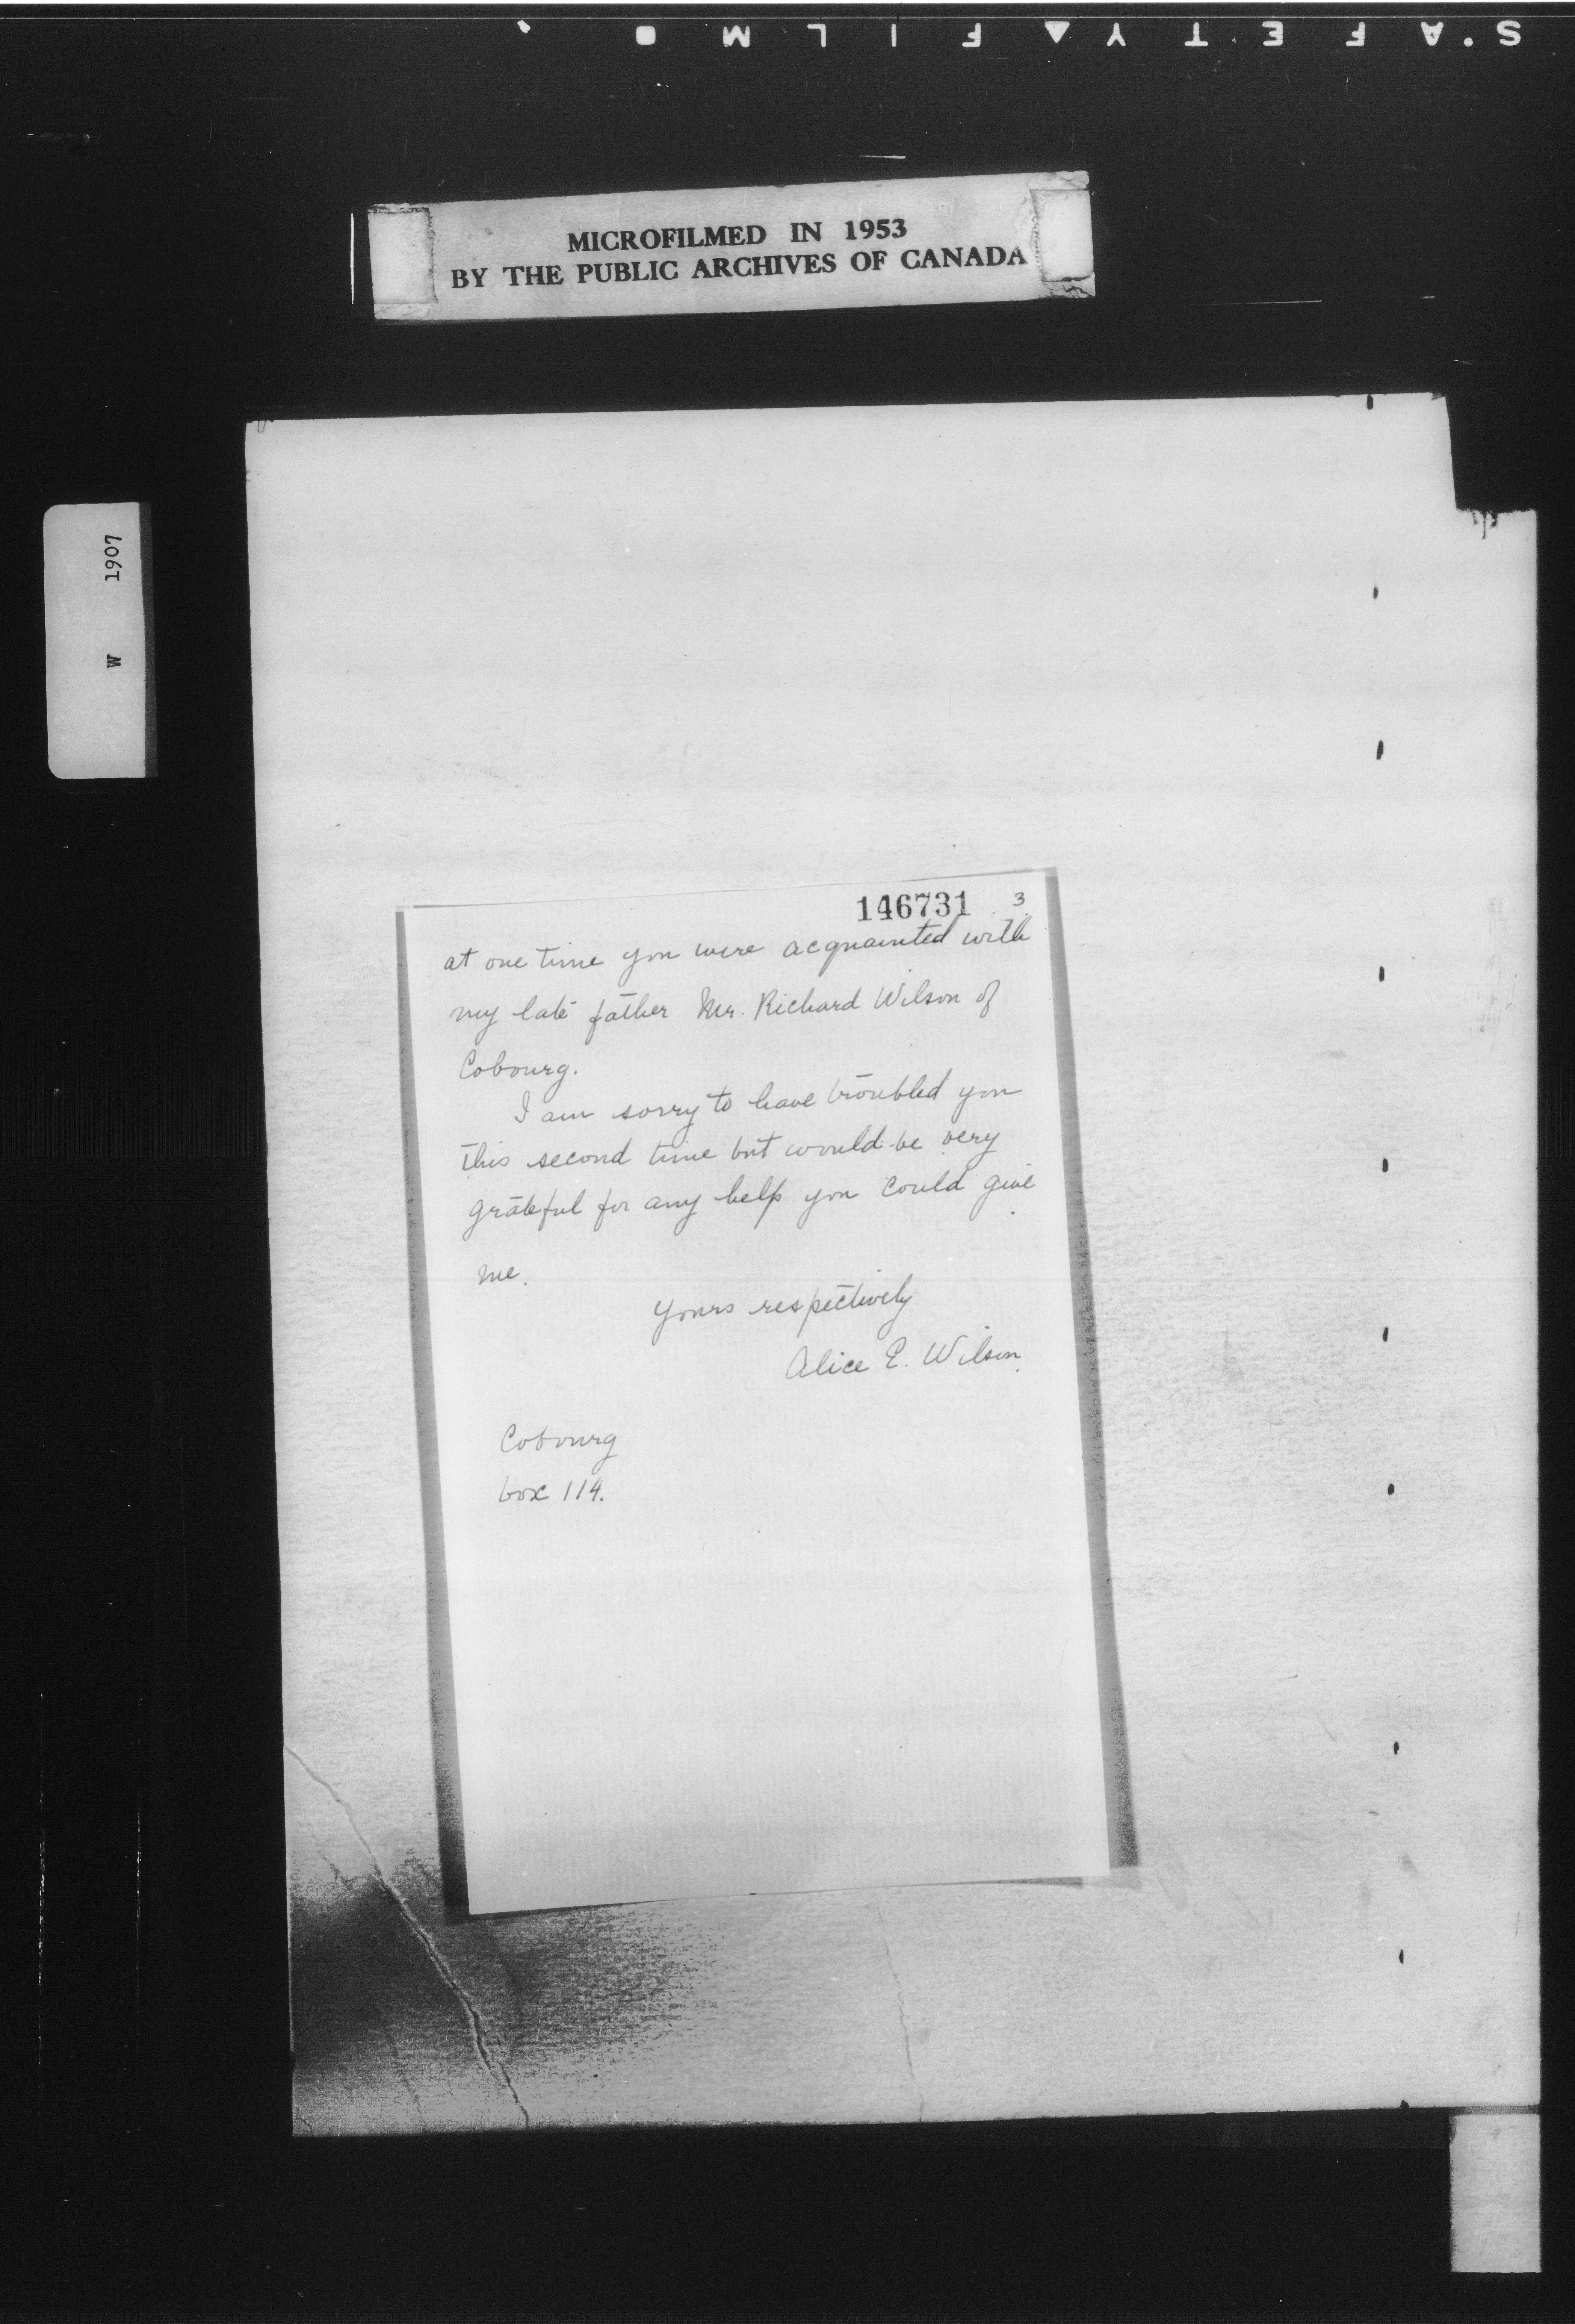 S.AFETY▲FILM
MICROFILMED IN 1953
BY THE PUBLIC ARCHIVES OF CANADA
W 1907
146731 3
at one time you were acquainted with
my late father Mr. Richard Wilson of
Cobourg.
I am sorry to have troubled you
this second time but would be very
grateful for any help you could give
me.
Yours respectively
Alice E. Wilson.
Cobourg
box 114.